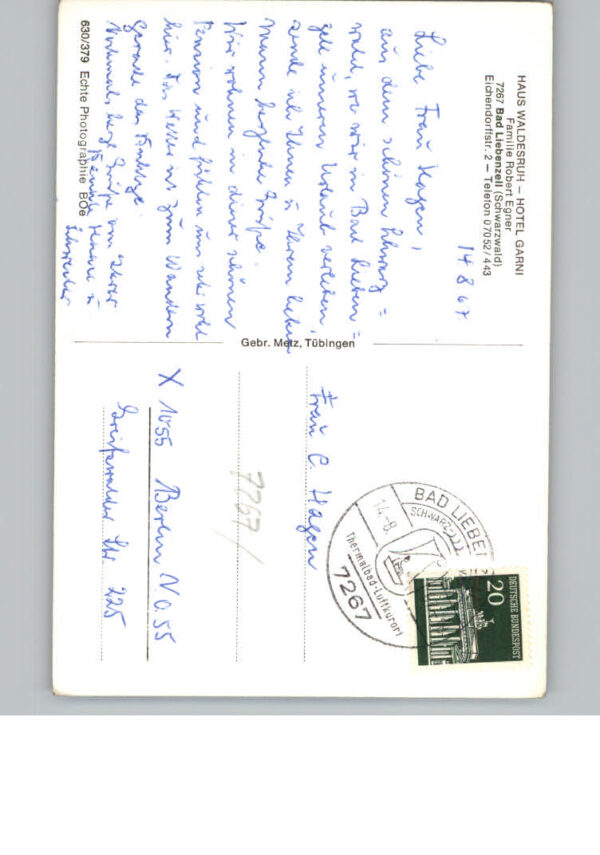 HAUS WALDESRUH – HOTEL GARNI
Familie Robert Egner
7267 Bad Liebenzell (Schwarzwald)
Eichendorffstr. 2 – Telefon 07052/443
14.8.67
Liebe Frau Hagen,
aus dem schönen Schwarz=
wald, wo wir in Bad Lieben=
zell unseren Urlaub verleben,
sende ich Ihnen u. Ihrem lieben
Mann herzliche Grüße.
Wir wohnen in dieser schönen
Pension und fühlen uns sehr wohl
hier. Das Wetter ist zum Wandern
gerade das Richtige.
Nochmals herzl. Grüße von Ihrer
u.
630/379 Echte Photographie BOe
Gebr. Metz, Tübingen
BAD LIEBEN
SCHWARZW
14.-8.
Thermalbad-Luftkurort
7267
DEUTSCHE BUNDESPOST
20
Frau C. Hagen
7267/
X 1055 Berlin NO 55
Greifswalder Str. 225